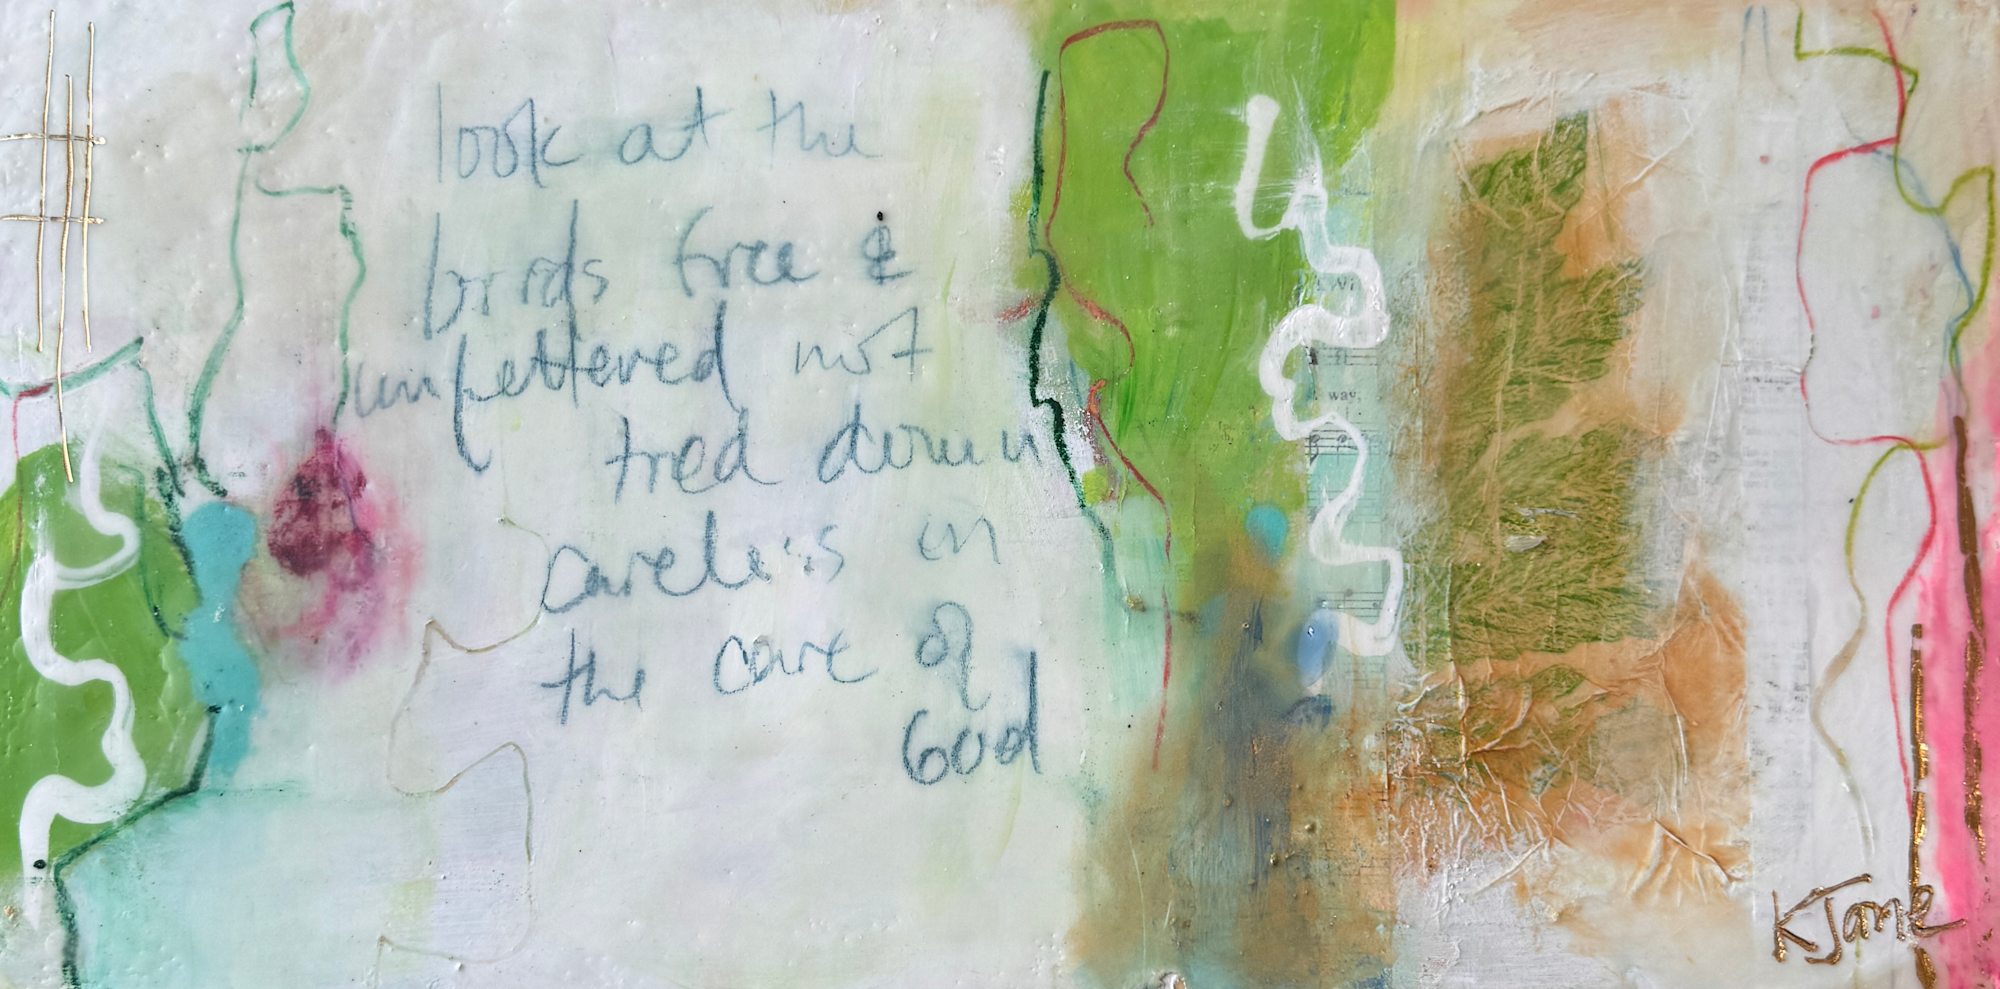 look at the
birds free &
unfettered not
tied down
careless in
the care of
God
Wi
way,
KJane